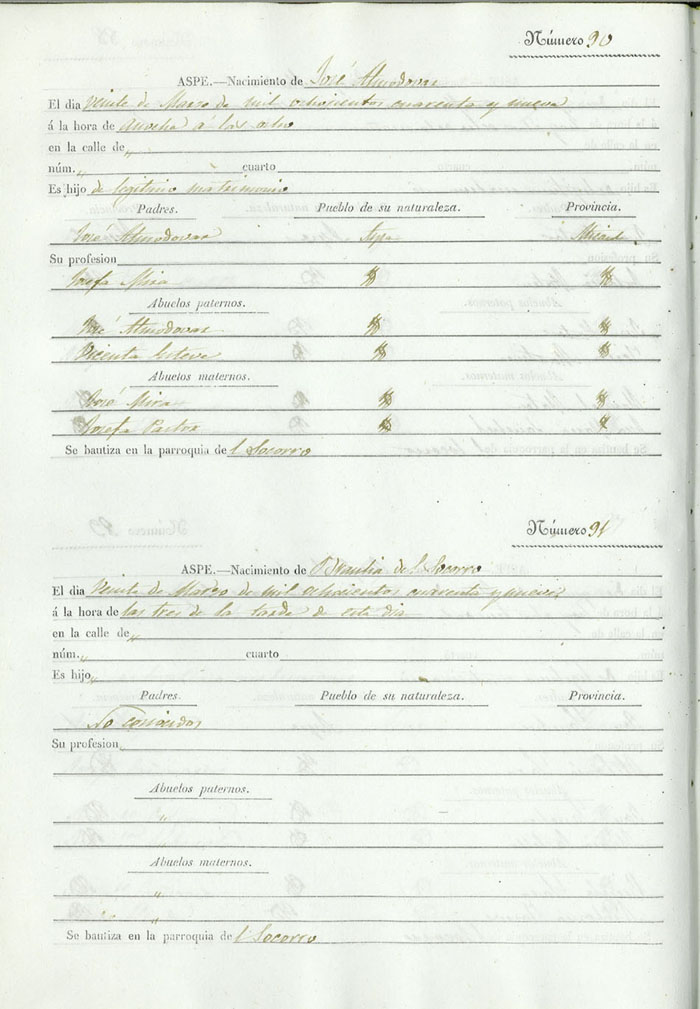 Número 90
ASPE.—Nacimiento de José Almodovar
El dia veinte de Marzo de mil ochocientos cuarenta y nueve
á la hora de anoche a las ocho
en la calle de „
núm. „ cuarto
Es hijo de legitimo matrimonio
Padres. Pueblo de su naturaleza. Provincia.
José Almodovar Aspe Alicante
Su profesion
Josefa Mira
Abuelos paternos.
José Almodovar
Vicenta Esteve
Abuelos maternos.
José Mira
Josefa Pastor
Se bautiza en la parroquia de l Socorro
Número 91
ASPE.—Nacimiento de Braulia del Socorro
El dia veinte de Marzo de mil ochocientos cuarenta y nueve
á la hora de las tres de la tarde de este dia
en la calle de „
núm. „ cuarto
Es hijo „
Padres. Pueblo de su naturaleza. Provincia.
No conocidos
Su profesion
Abuelos paternos.
„
Abuelos maternos.
„
„
Se bautiza en la parroquia de l Socorro